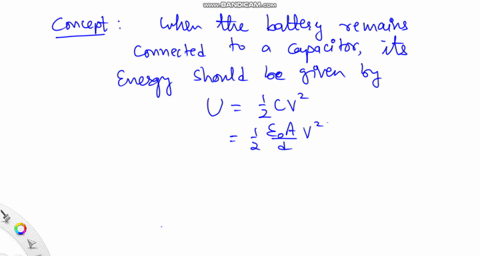 WWW.BANDICAM.COM
Concept : When the battery remains
connected to a capacitor, its
Energy should be given by
U = 1/2 CV²
= 1/2 ε₀A/d V²